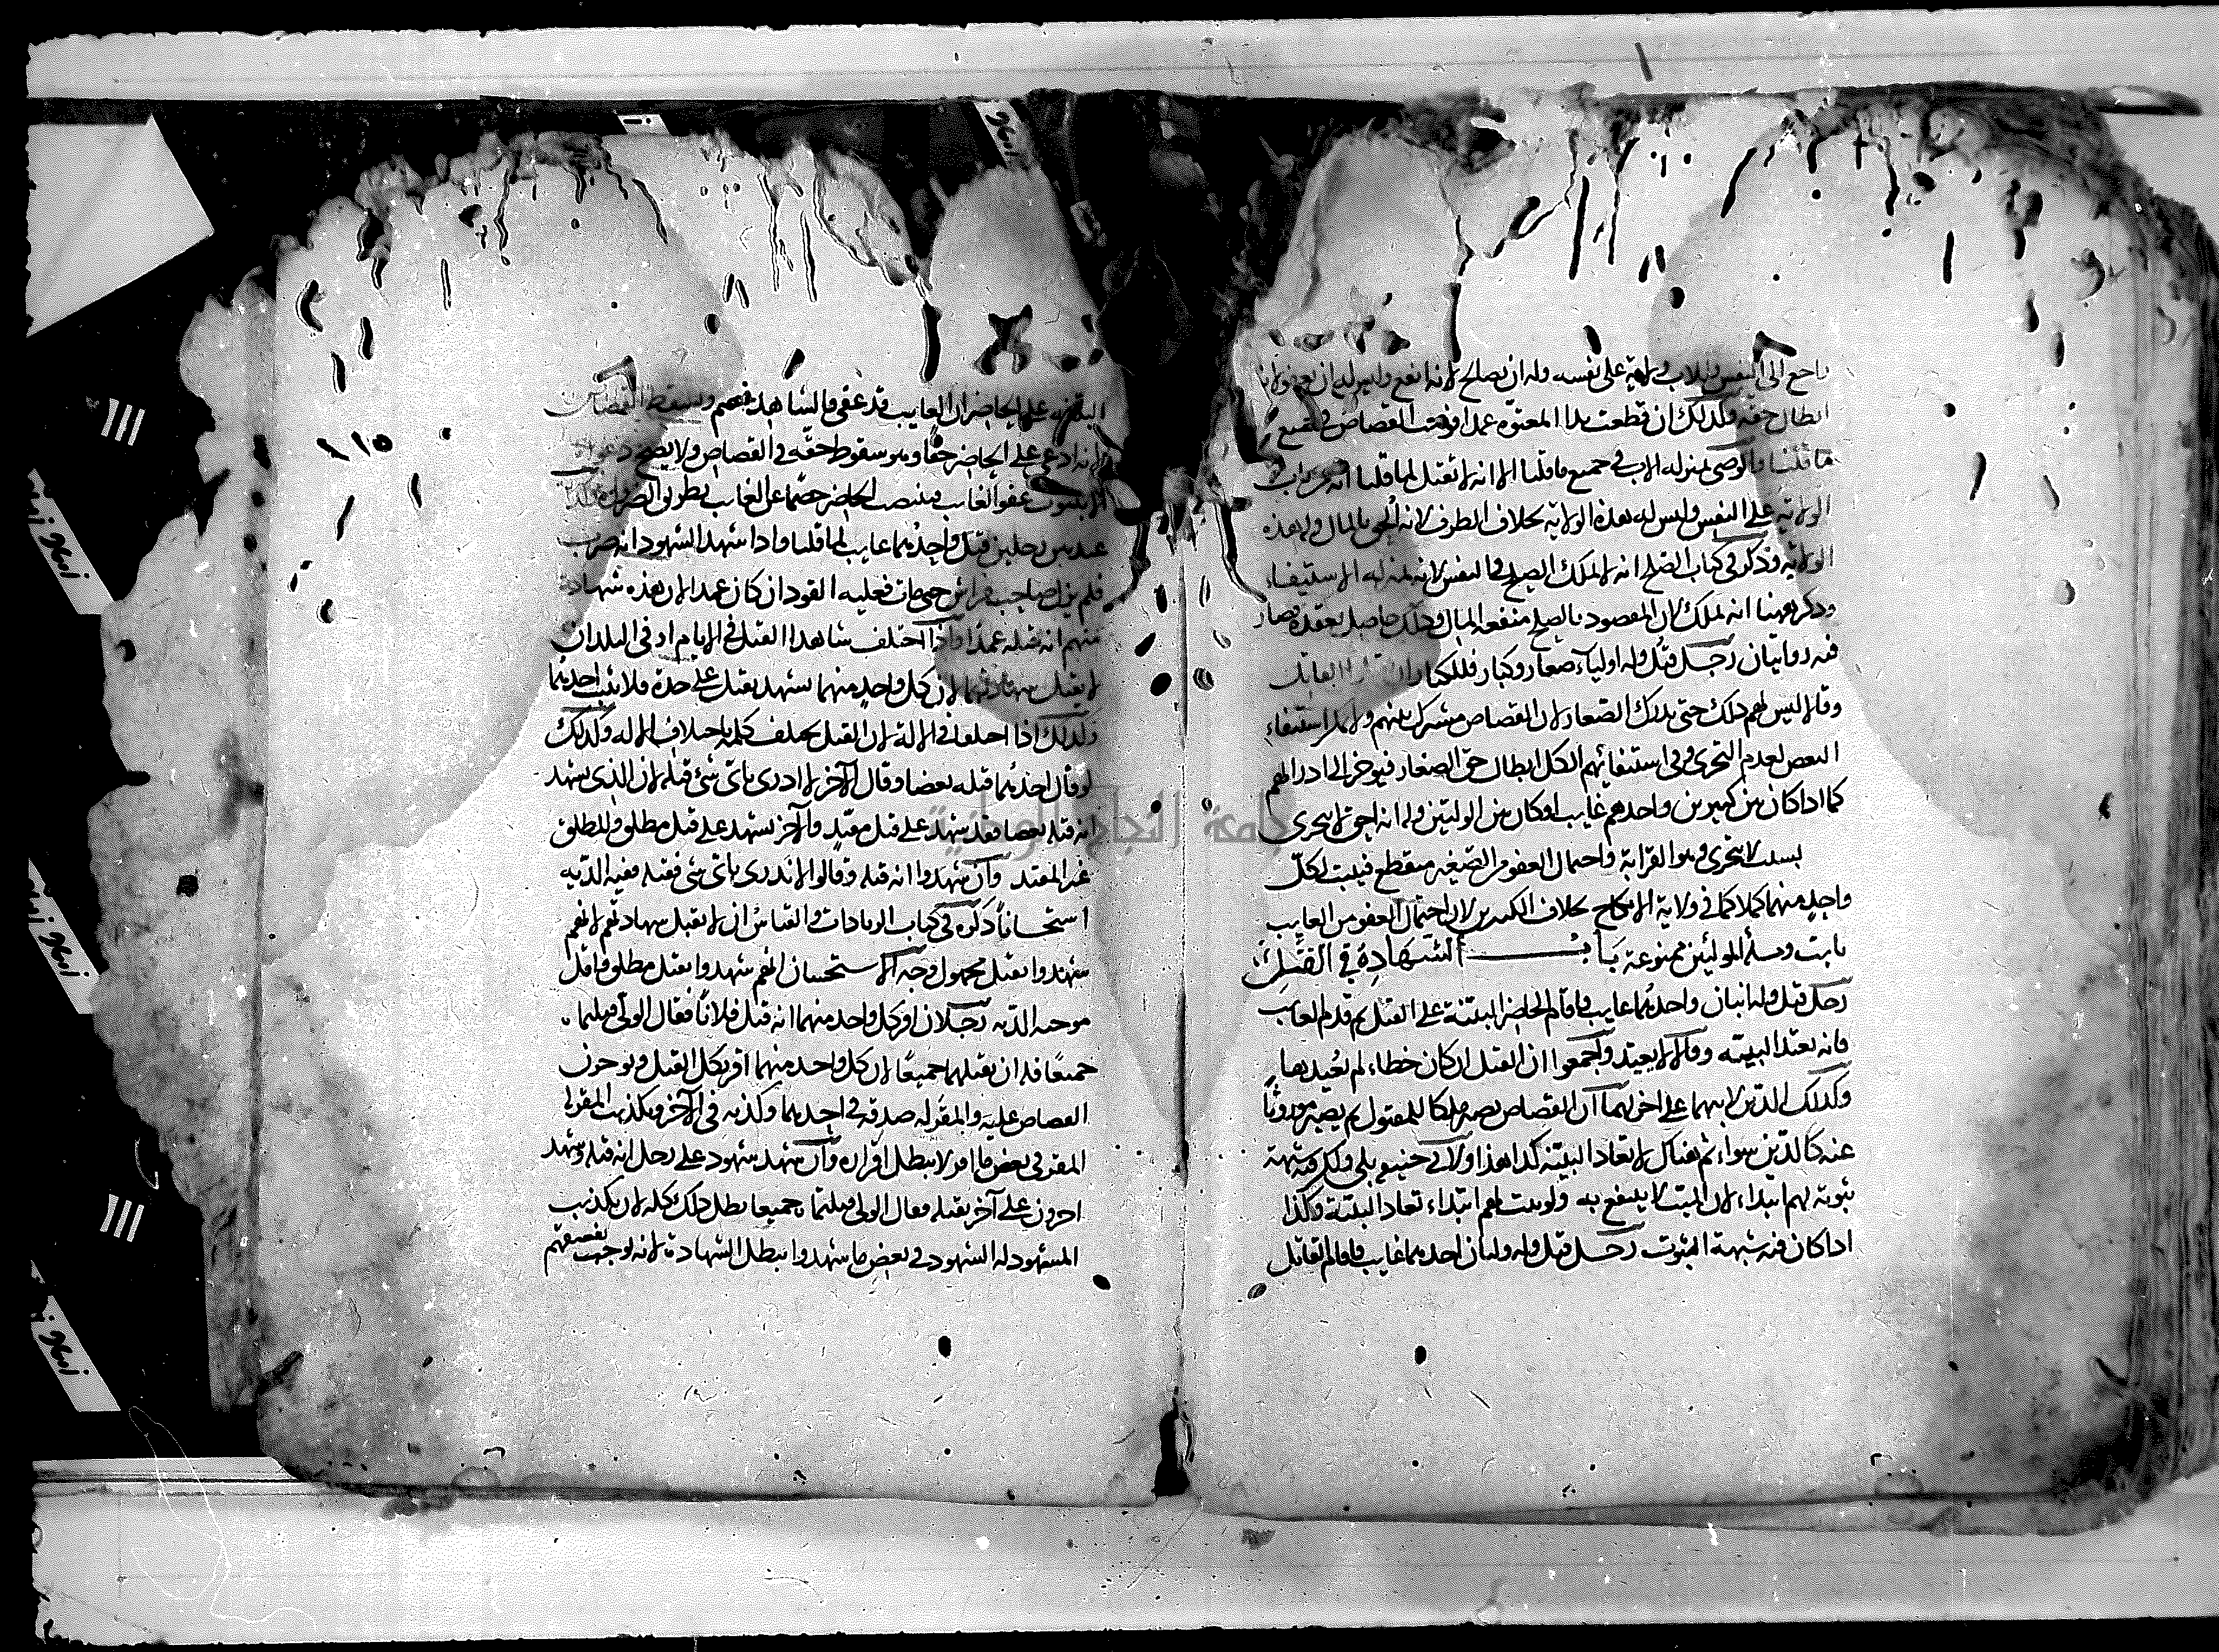 راجع الى النفس وللاب ولاية على نفسه وله ان يصالح لانه انفع وليس له ان يعفو لانه
ابطال حقه وكذلك ان قطعت يد المعتوه عمدا فوجب القصاص في جميع
ما قلنا والوصي بمنزله الاب في جميع ما قلنا الا انه لا يقتل لما قلنا انه من باب
الولاية على النفس وليس له هذه الولاية بخلاف الطرف لانه الحق بالمال وله هذه
الولاية وذكر في كتاب الصلح انه لا يملك الصلح في النفس لانه بمنزله الاستيفاء
وذكر ههنا انه يملك لان المقصود بالصلح منفعه المال وذلك حاصل بعقده فصار
فيه روايتان رجل قتل وله اولياء صغار وكبار فللكبار ان القاتل
وقالا ليس لهم ذلك حتى يدرك الصغار لان القصاص مشترك بينهم ولا يمكن استيفاء
البعض لعدم التجزي وفي استيفائهم الكل ابطال حق الصغار فيؤخر الى ادراكهم
كما اذا كان بين كبيرين واحدهم غايب او كان بين الوليين وله انه حق لا يتجزى
بسبب لا يتجزى وهو القرابة واحتمال العفو من الصغير منقطع فيثبت لكل
واحد منهما كملا كما في ولاية الانكاح بخلاف الكبيرين لان احتمال العفو من الغايب
ثابت ومسألة الموليين ممنوعة باب الشهادة في القتل
رجل قتل وله ابنان واحدهما غايب فاقام الحاضر البينة على القتل ثم قدم الغايب
فانه يعيد البينه وقالا لا يعيد واجمعوا ان القتل اذا كان خطاء لم يعيدها
وكذلك الدين لابيهما على اخر لهما ان القصاص يصير ملكا للمقتول ثم يصير موروثا
عنه كالدين سواء ثم هناك لا تعاد البينة كذا هذا ولابي حنيفة بلى ولكن فيه شبهة
ثبوته لهم ابتداء لان الميت لا ينتفع به ولو ثبت لهم ابتداء تعاد البينة وكذا
اذا كان فيه شبهة الثبوت رجل قتل وله وليان احدهما غايب فاقام القاتل
البينة على الحاضر ان الغايب قد عفى فالشاهد خصم ويسقط القصاص
لانه ادعى على الحاضر حقا وهو سقوط حقه في القصاص ولا يصح دعواه
الا بثبوت عفو الغايب فينتصب الحاضر خصما عن الغايب بطريق الضرورة وكذلك
عبد بين رجلين قتل واحدهما غايب لما قلنا واذا شهد الشهود انه ضربه
فلم يزل صاحب فراش حتى مات فعليه القود ان كان عمدا لان هذه شهادة
منهم انه قتله عمدا واذا اختلف شاهدا القتل في الايام او في البلدان
لا يقبل شهادتهما لان كل واحد منهما يشهد بقتل على حدة فلا يثبت احدهما
وكذلك اذا اختلفا في الالة لان القتل يختلف حكمه باختلاف الاله وكذلك
لو قال احدهما قتله بعصا وقال الآخر لا ادري باي شئ قتله لان الذي يشهد
انه قتله بعصا فقد شهد على قتل مقيد والآخر يشهد على قتل مطلق والمطلق
غير المقيد وان شهدوا انه قتله وقالوا لا ندري باي شئ قتله ففيه الديه
استحسانا ذكره في كتاب الزيادات والقياس ان لا يقبل شهادتهم لانهم
شهدوا بقتل مجهول وجه الاستحسان انهم شهدوا بقتل مطلق واقل
موجبه الديه رجلان اقر كل واحد منهما انه قتل فلانا فقال الولي قتلتماه
جميعا فله ان يقتلهما جميعا لان كل واحد منهما اقر بكل القتل وبوجوب
القصاص عليه والمقر له صدقه في احدهما وكذبه في الآخر وتكذيب المقر له
المقر في بعض ما اقر لا يبطل اقراره وان شهد شهود على رجل انه قتله وشهد
اخرون على آخر بقتله فقال الولي قتلتماه جميعا بطل ذلك كله لان تكذيب
المشهود له الشهود في بعض ما شهدوا يبطل الشهادة لانه يوجب تفسيقهم
١١٥
جامعة النجاح الوطنية